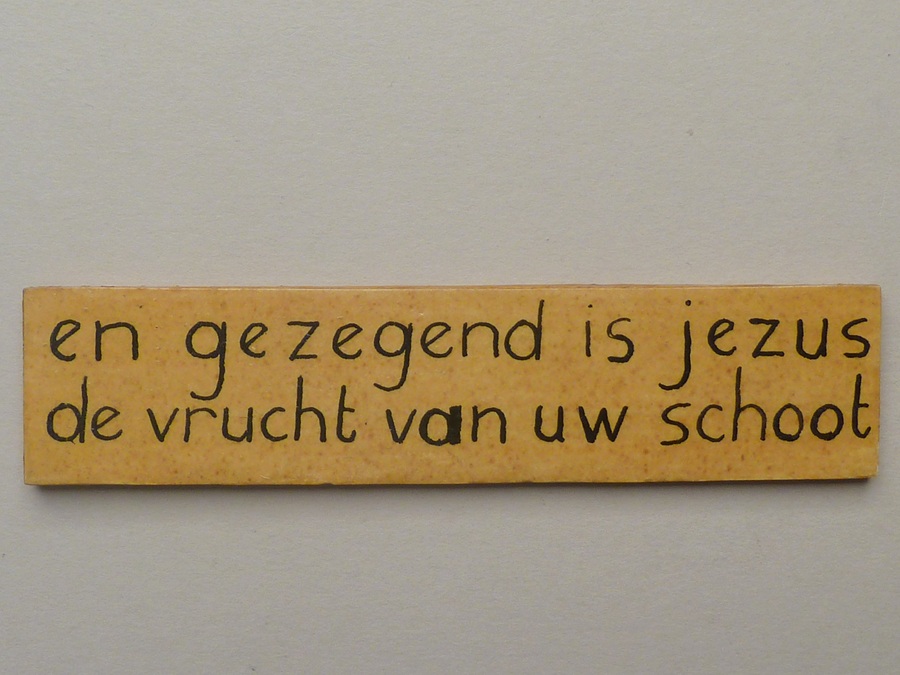 en gezegend is jezus
de vrucht van uw schoot